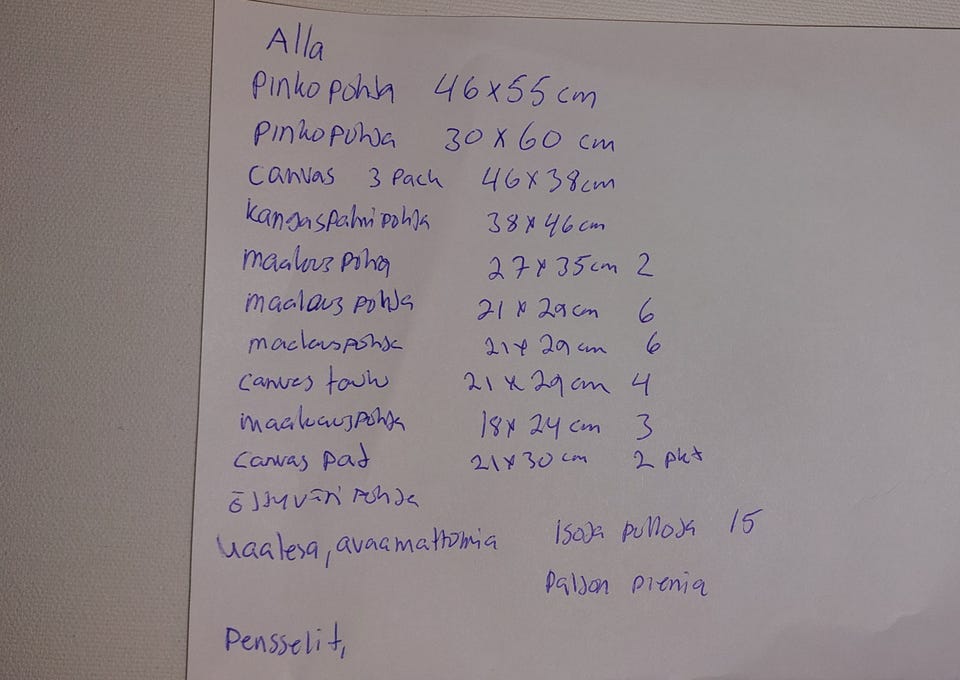 Alla
Pinkopohja 46x55 cm
Pinkopohja 30 x 60 cm
Canvas 3 Pack 46x38cm
kangaspahvipohja 38x46cm
maalauspohja 27x35cm 2
maalauspohja 21 x 29cm 6
maalauspohja 21x 29 cm 6
Canvas 21 x 29 cm 4
maalauspohja 18x 24 cm 3
Canvas Pad 21x30 cm 2 pkt
öljyväri pohja
avaamattomia isoja pulloja 15
Paljon pieniä
Pensselit,